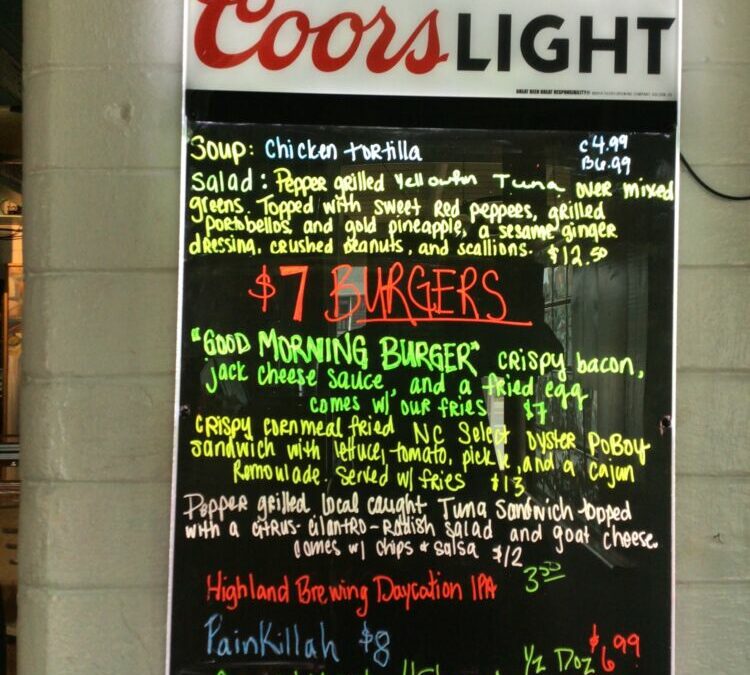 Coors LIGHT
GREAT BEER GREAT RESPONSIBILITY®
Soup: Chicken tortilla C 4.99
B 6.99
Salad: Pepper grilled Yellowfin Tuna over mixed
greens. Topped with sweet Red peppers, grilled
portobellos and gold pineapple, a sesame ginger
dressing, crushed peanuts, and scallions. $12.50
$7 BURGERS
"GOOD MORNING BURGER" crispy bacon,
jack cheese sauce, and a fried egg
comes w/ our fries $7
Crispy cornmeal fried NC Select oyster PoBoy
sandwich with lettuce, tomato, pickle, and a Cajun
Remoulade. Served w/ fries $13
Pepper grilled local caught Tuna Sandwich topped
with a citrus-cilantro-radish salad and goat cheese.
Comes w/ chips & salsa $12
Highland Brewing Daycation IPA 3.50
PainKillah $8
1/2 Doz $6.99